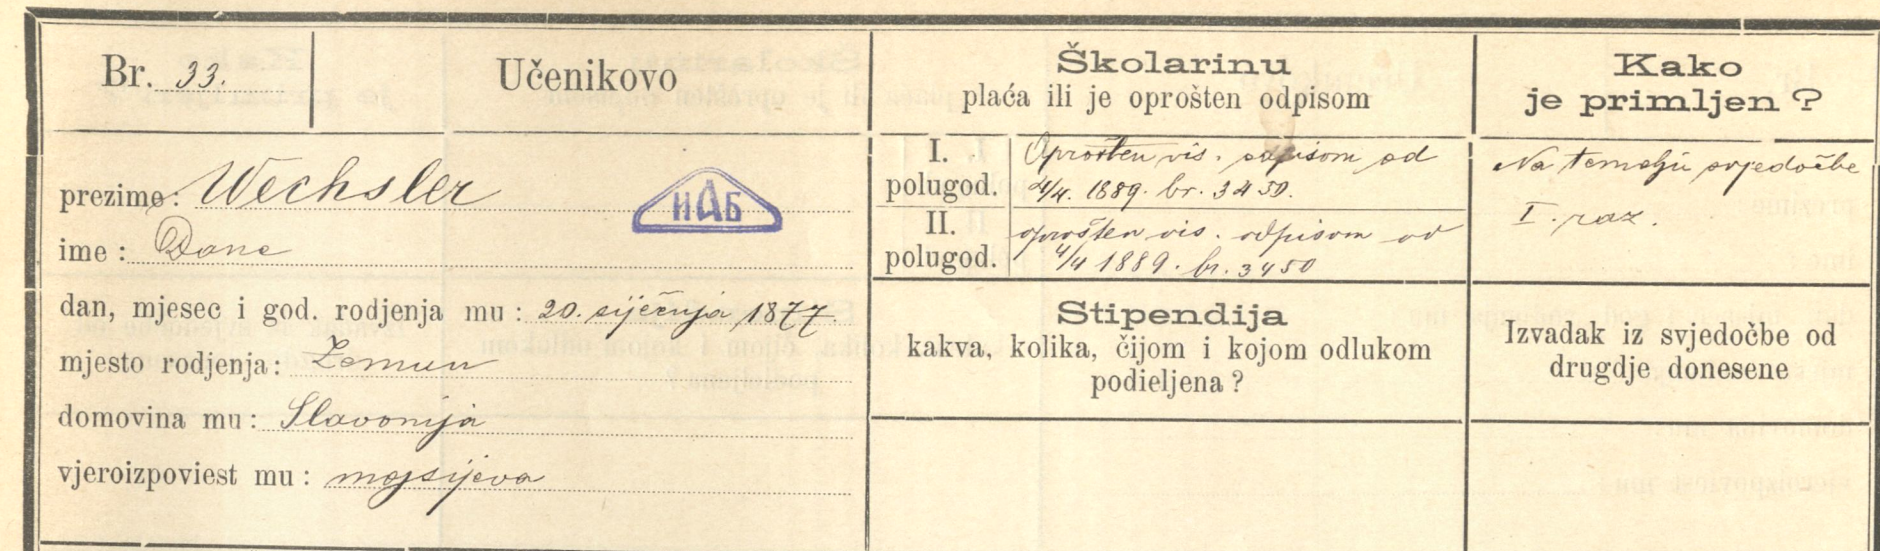 Br. 33.
Učenikovo
prezime: Wechsler
ИАБ
ime: Dane
dan, mjesec i god. rodjenja mu: 20. siječnja 1877.
mjesto rodjenja: Zemun
domovina mu: Slavonija
vjeroizpoviest mu: mojsijeva
Školarinu
plaća ili je oprošten odpisom
I. polugod.
Oprošten vis. odpisom od
4/4. 1889. br. 3450.
II. polugod.
oprošten vis. odpisom od
4/4 1889. br. 3450
Stipendija
kakva, kolika, čijom i kojom odlukom
podieljena?
Kako
je primljen?
Na temelju svjedočbe
I. raz.
Izvadak iz svjedočbe od
drugdje donesene